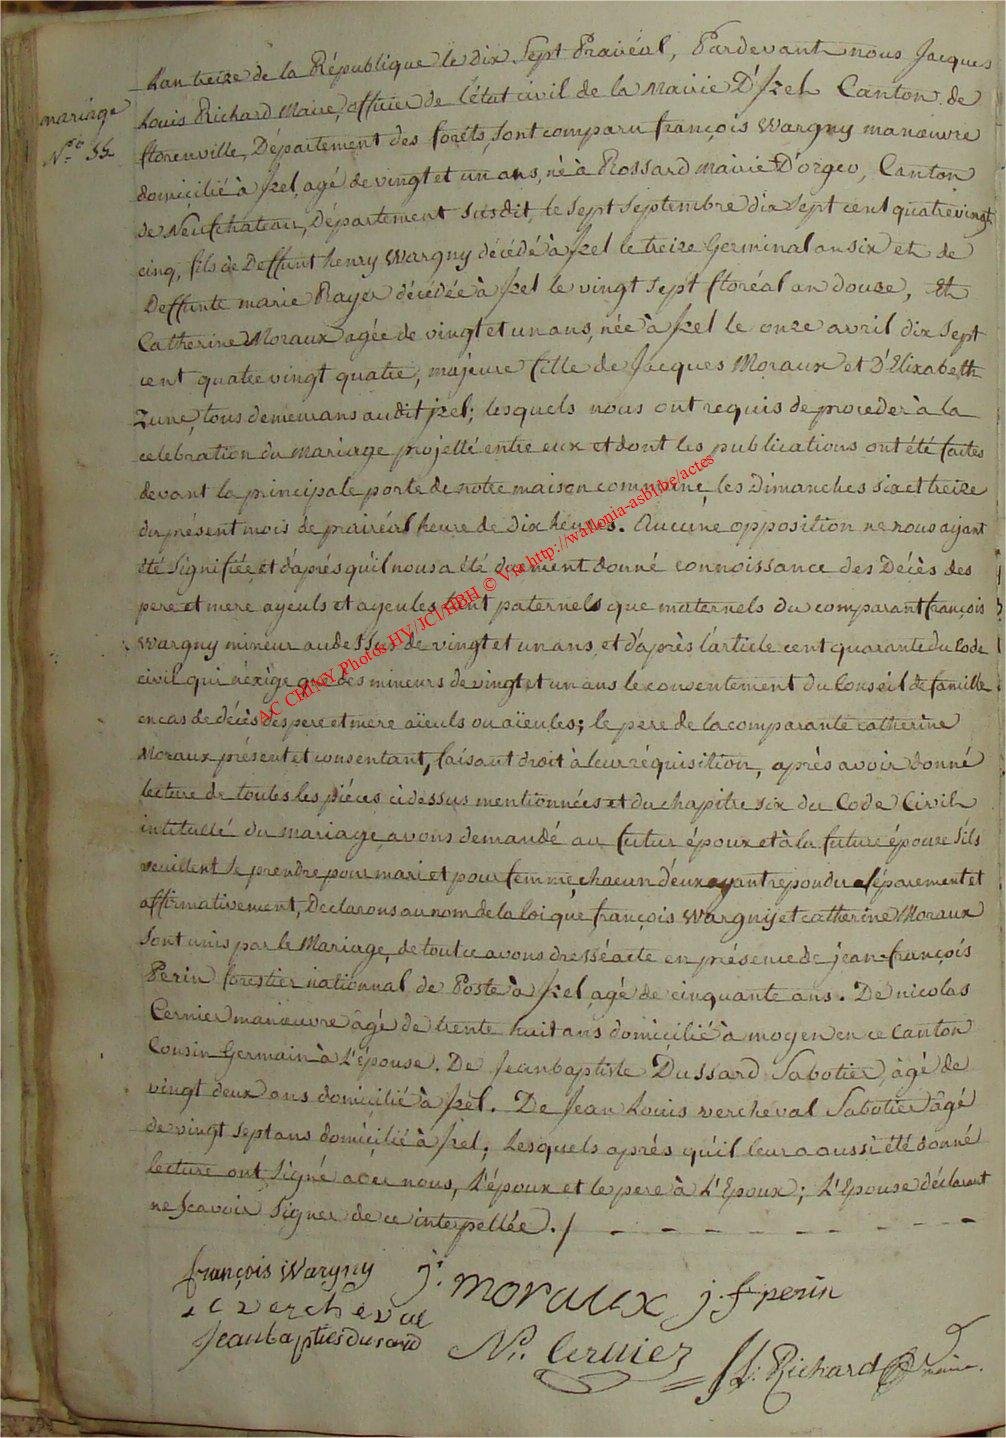 L'an treize de la République le dix sept Prairéal, Pardevant nous Jacques
mariage
N.° 55
Louis Richard Maire, officier de l'état civil de la Mairie D'Jzel Canton de
florenville, Département des forêts, sont comparu françois Wargny manœuvre
domicilié à Jzel, agé de vingt et un ans, né à Rossard mairie D'orgeo, Canton
de Neufchateau, Département susdit, le sept septembre dix sept cent quatrevingt
cinq, fils de Deffunt henry Wargny décédé à Jzel le treize Germinal an six et de
Deffunte marie Rayer décédée à Jzel le vingt sept floréal an douze, Et
Catherine Moraux agée de vingt et un ans, née à Jzel le onze avril dix sept
cent quatre vingt quatre, majeure fille de Jacques Moraux et D'Elizabeth
Zune, tous demeurans audit jzel; lesquels nous ont requis de proceder à la
celebration du mariage projetté entre eux et dont les publications ont été faites
devant la principale porte de notre maison commune, les Dimanches six et treize
du présent mois de prairéal heure de dix heures. Aucune opposition ne nous aÿant
été signifiée et d'après qu'il nous a été duement donné connoissance des Décès des
pere et mere ayeuls et ayeules tent paternels que maternels du comparant françois
Wargny mineur au dessus de vingt et un ans, et d'après l'article cent quarante du Code
civil qui n'exige que des mineurs de vingt et un ans le consentement du Conseil de famille
en cas de décès des pere et mere aïeuls ou aïeules; le pere de la comparante catherine
Moraux présent et consentant, faisant droit à leur réquisition, après avoir donné
lecture de toutes les piéces cidessus mentionnées et du chapitre six du Code Civil
intitullé du mariage avons demandé au futur époux et à la future épouse s'ils
veuillent se prendre pour mari et pour femme, chacun d'eux ayant repondu séparement et
affirmativement, Declarons au nom de la loi que françois Wargnij et catherine Moraux
sont unis par le Mariage, de tout ce avons dressé acte en présence de jean françois
Perin forestier nationnal de Poste à Jzel, agé de cinquante ans. De nicolas
Cernier manœuvre âgé de trente huit ans domicilié à moyen en ce Canton
Cousin Germain à l'épouse. De Jeanbaptiste Dussard Sabotier, âgé de
vingt deux ans domicilié à Jzel. De Jean Louis vercheval Sabotier âgé
de vingt sept ans domicilié à Jzel, Lesquels après qu'il leur a aussi été donné
lecture ont signé avec nous, L'époux et le pere à L'Epoux; L'Epouse déclarant
ne scavoir signer de ce interpellée./
françois Wargny j. moraux j. f perin
vercheval
Jeanbaptiesdusard N. Cernier JL: Richard maire.
AC CHINY Photos HV/JCI/HBH © Via http://wallonia-asbl.be/actes